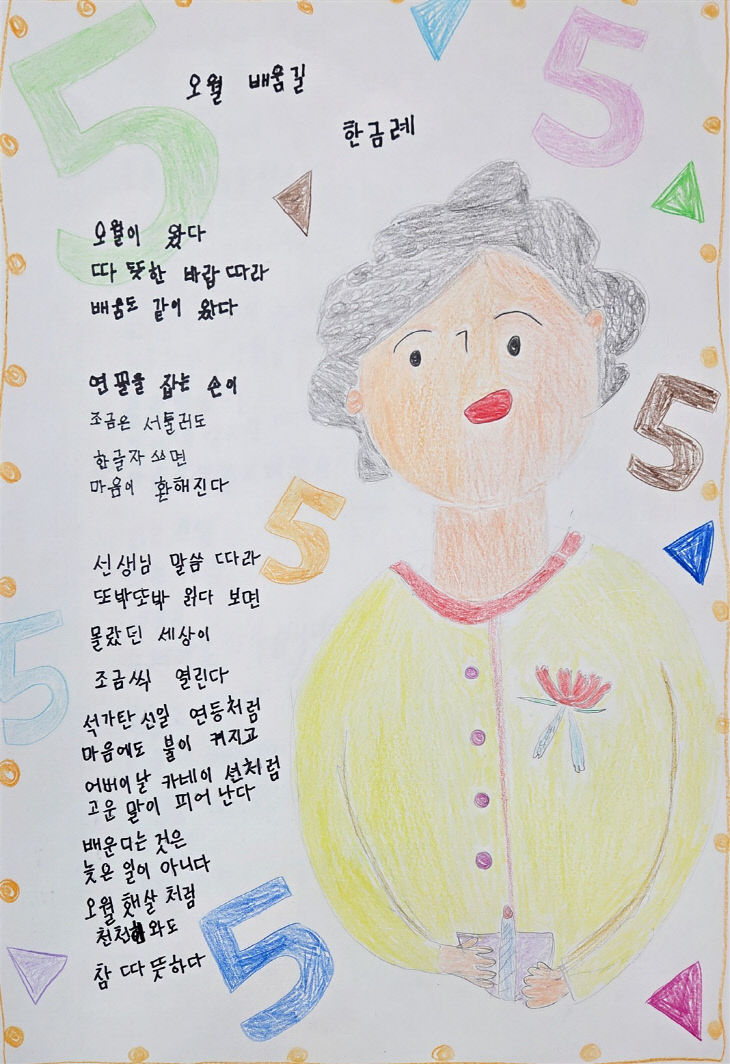 오월 배움길
한금례
오월이 왔다
따뜻한 바람 따라
배움도 같이 왔다
연필을 잡는 손이
조금은 서툴러도
한글자 쓰면
마음이 환해진다
선생님 말씀 따라
또박또박 읽다 보면
몰랐던 세상이
조금씩 열린다
석가탄신일 연등처럼
마음에도 불이 켜지고
어버이날 카네이션처럼
고운 말이 피어난다
배운다는 것은
늦은 일이 아니다
오월 햇살처럼
천천히 와도
참 따뜻하다
5
5
5
5
5
5